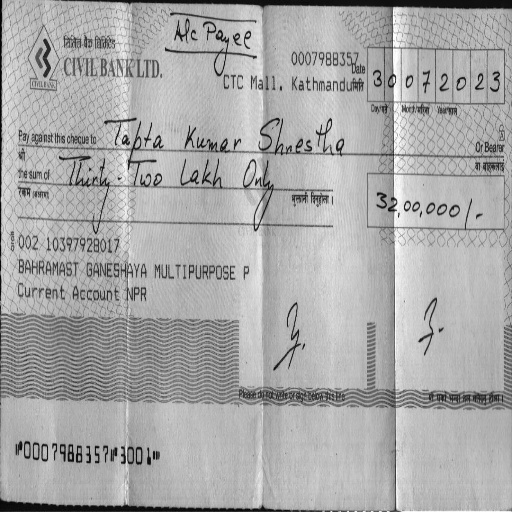 A/c Payee
सिभिल बैंक लिमिटेड
CIVIL BANK LTD.
CIVIL BANK
0007988357
CTC Mall, Kathmandu
Date
मिति
30072023
Day/गते Month/महिना Year/साल
Pay against this cheque to Tapta Kumar Shrestha Or Bearer
श्री
वा बाहकलाई
the sum of Thirty-Two Lakh Only
रकम (अक्षरमा)
भुक्तानी दिनुहोला ।
32,00,000/-
002 10397928017
BAHRAMAST GANESHAYA MULTIPURPOSE P
Current Account NPR
Please do not write or sign below this line
⑈0007988357⑈3001⑈